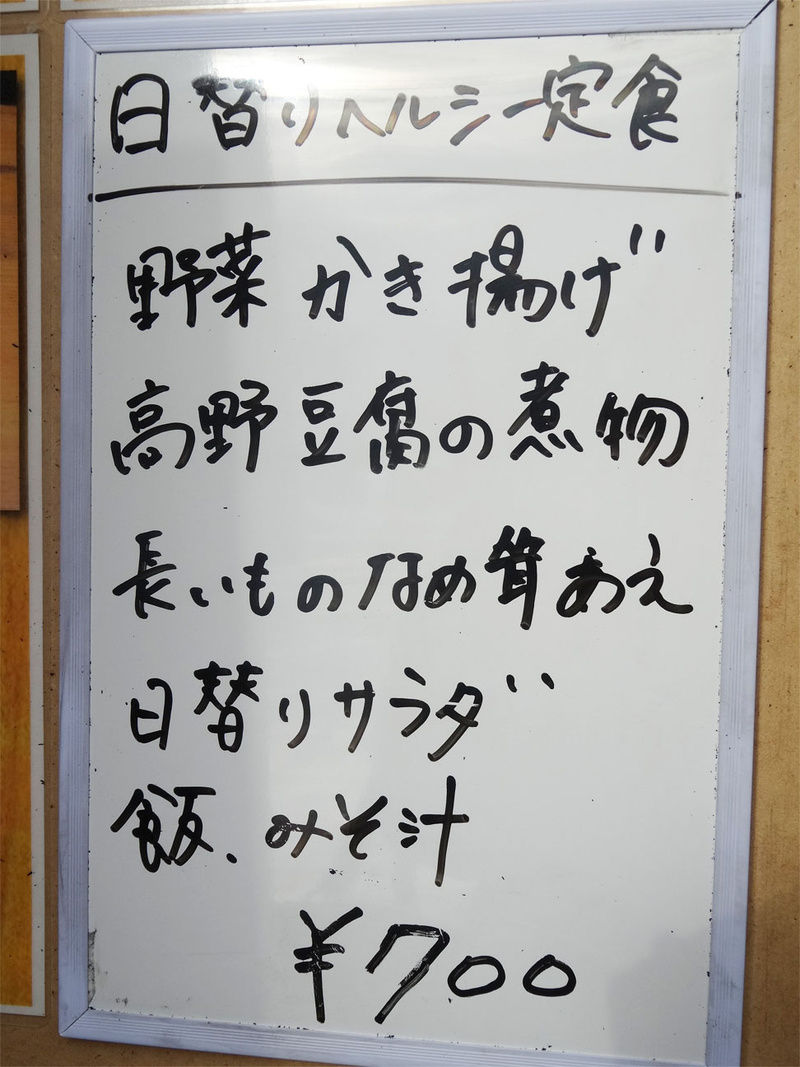 日替りヘルシー定食
野菜かき揚げ
高野豆腐の煮物
長いものなめ茸あえ
日替りサラダ
飯、みそ汁
¥700